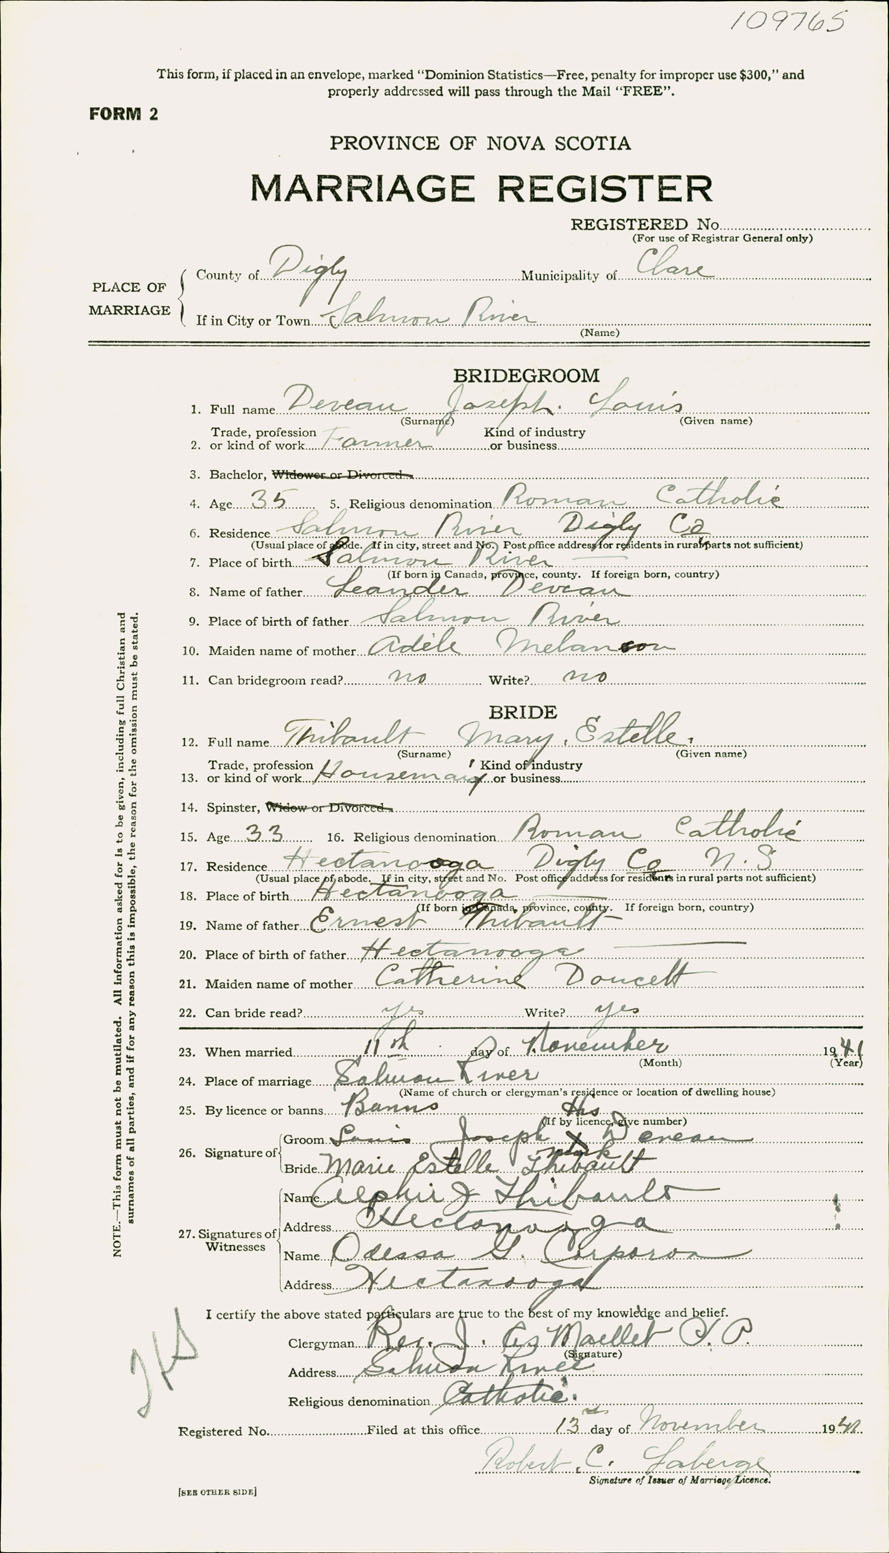 109765
This form, if placed in an envelope, marked "Dominion Statistics—Free, penalty for improper use $300," and
properly addressed will pass through the Mail "FREE".
FORM 2
PROVINCE OF NOVA SCOTIA
MARRIAGE REGISTER
REGISTERED No.
(For use of Registrar General only)
PLACE OF MARRIAGE
County of Digby Municipality of Clare
If in City or Town Salmon River
(Name)
BRIDEGROOM
1. Full name Deveau Joseph. Louis
(Surname) (Given name)
2. Trade, profession or kind of work Farmer Kind of industry or business
3. Bachelor, Widower or Divorced
4. Age 35 5. Religious denomination Roman Catholic
6. Residence Salmon River Digby Co
(Usual place of abode. If in city, street and No. Post office address for residents in rural parts not sufficient)
7. Place of birth Salmon River
(If born in Canada, province, county. If foreign born, country)
8. Name of father Leander Deveau
9. Place of birth of father Salmon River
10. Maiden name of mother Adèle Melanson
11. Can bridegroom read? no Write? no
BRIDE
12. Full name Thibault Mary. Estelle.
(Surname) (Given name)
13. Trade, profession or kind of work Housemaid Kind of industry or business
14. Spinster, Widow or Divorced
15. Age 33 16. Religious denomination Roman Catholic
17. Residence Hectanooga Digby Co N.S
(Usual place of abode. If in city, street and No. Post office address for residents in rural parts not sufficient)
18. Place of birth Hectanooga
(If born in Canada, province, county. If foreign born, country)
19. Name of father Ernest Thibault
20. Place of birth of father Hectanooga
21. Maiden name of mother Catherine Doucett
22. Can bride read? yes Write? yes
23. When married 11th day of November 1941
(Month) (Year)
24. Place of marriage Salmon River
(Name of church or clergyman's residence or location of dwelling house)
25. By licence or banns Banns
(If by licence, give number)
His
26. Signature of Groom Louis Joseph X Deveau
mark
Bride Marie Estelle Thibault
27. Signatures of Witnesses
Name Alphie J Thibault
Address Hectanooga
Name Odessa G. Corporon
Address Hectanooga
I certify the above stated particulars are true to the best of my knowledge and belief.
Clergyman Rev. J. Maillet P.P.
(Signature)
Address Salmon River
Religious denomination Catholic.
Registered No. Filed at this office 13 day of November 1941
Robert C. Laberge
Signature of Issuer of Marriage Licence.
[SEE OTHER SIDE]
NOTE.—This form must not be mutilated. All information asked for is to be given, including full Christian and
surnames of all parties, and if for any reason this is impossible, the reason for the omission must be stated.